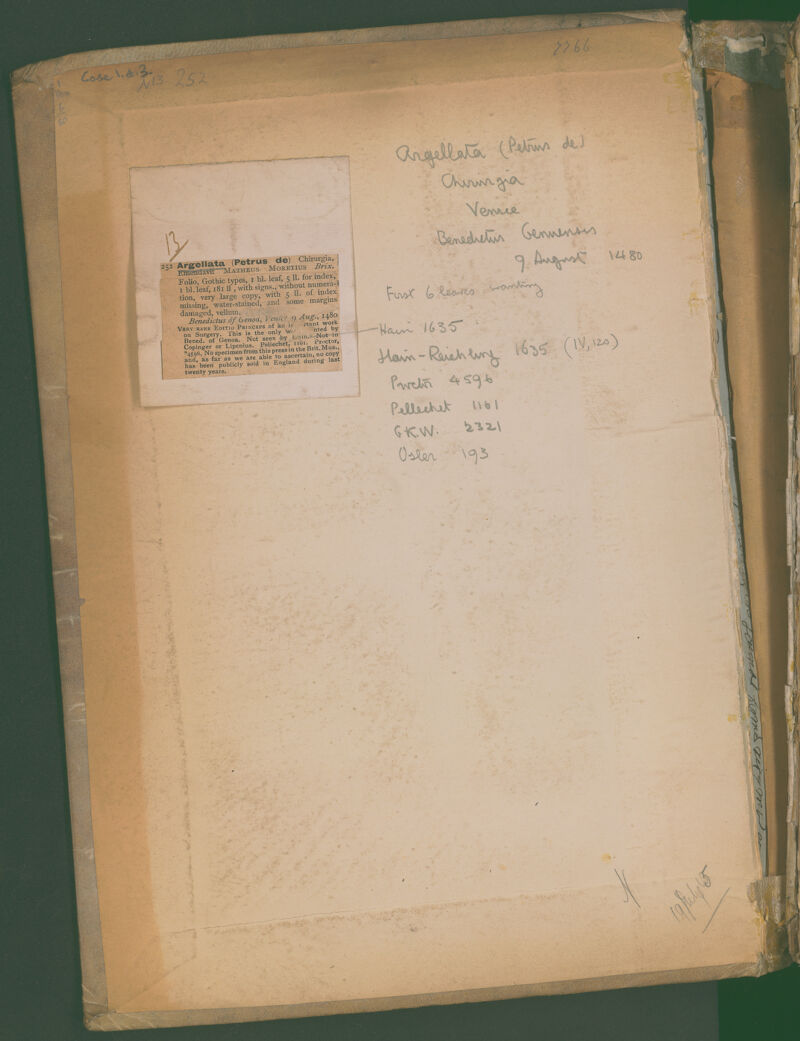 Case 1.a.3.
N13 252
2266
13
252 Argellata (Petrus de) Chirurgia,
Emendavit MATHEUS MORETIUS Brix.
Folio, Gothic types, 1 bl. leaf, 5 ll. for index,
1 bl. leaf, 181 ll, with signs., without numera-
tion, very large copy, with 5 ll. of index
missing, water-stained, and some margins
damaged, vellum.
Benedictus of Genoa, Venice 9 Aug., 1480
VERY RARE EDITIO PRINCEPS of an tant work
on Surgery. This is the only nted by
Bened. of Genoa. Not seen by Hain.—Not in
Copinger or Lipenius. Pellechet, 1161. Proctor,
*4596. No specimen from this press in the Brit. Mus.,
and, as far as we are able to ascertain, no copy
has been publicly sold in England during last
twenty years.
Argellata (Petrus de)
Chirurgia
Venice
Benedictus Genuensis
9 August 1480
First 6 leaves wanting
Hain 1635
Hain-Reichling 1635 (IV, 120)
Proctor 4596
Pellechet 1161
GKW. 2321
Osler 193
N